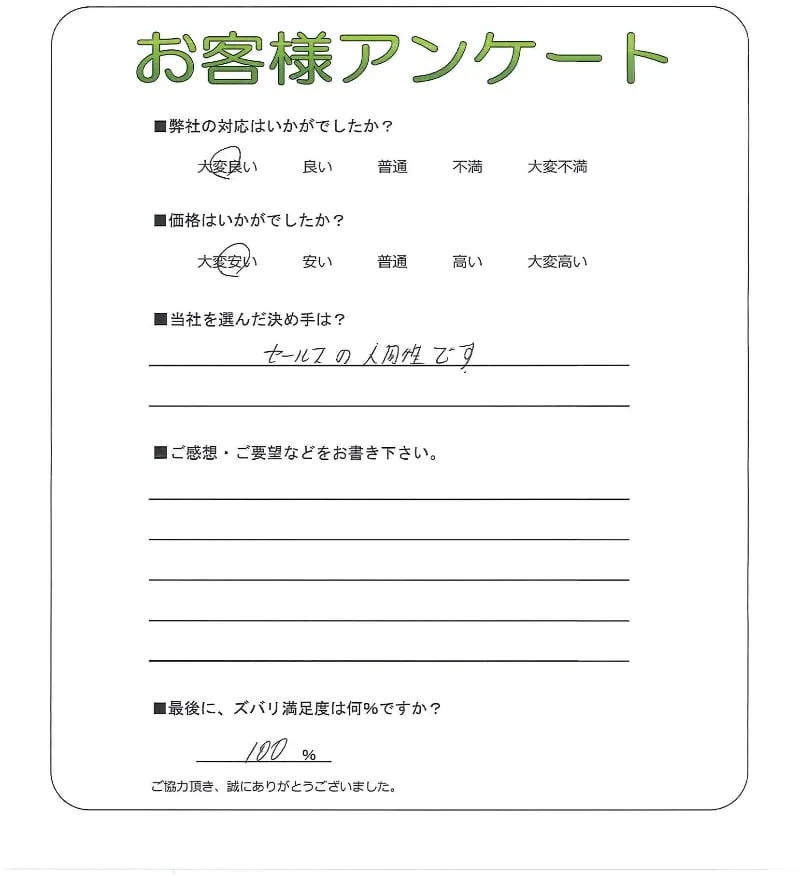 お客様アンケート
■弊社の対応はいかがでしたか？
大変良い 良い 普通 不満 大変不満
■価格はいかがでしたか？
大変安い 安い 普通 高い 大変高い
■当社を選んだ決め手は？
セールスの人間性です
■ご感想・ご要望などをお書き下さい。
■最後に、ズバリ満足度は何%ですか？
100 %
ご協力頂き、誠にありがとうございました。